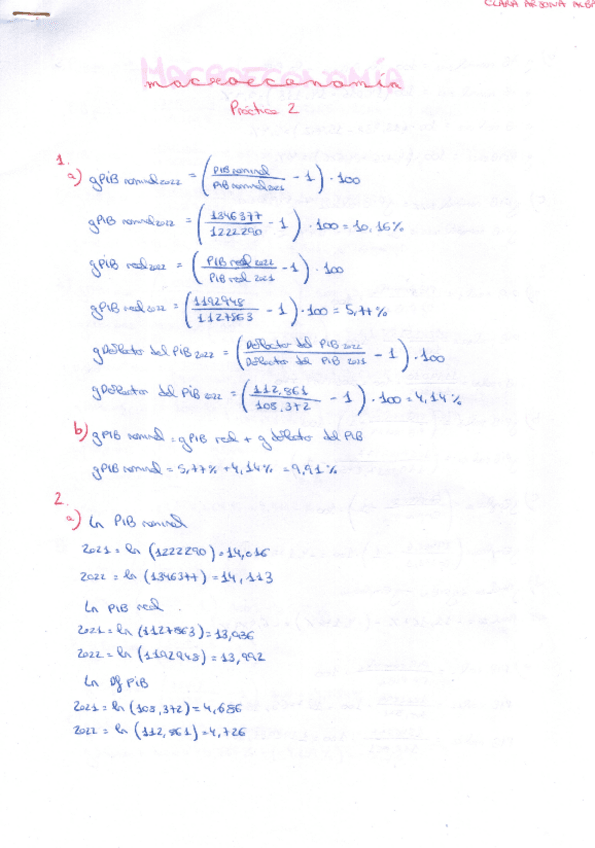 CLARA ARJONA
macroeconomía
Práctica 2
1.
a) gPIB nominal 2022 = (PIB nominal / PIB nominal 2021 - 1) · 100
gPIB nominal 2022 = (1346377 / 1222290 - 1) · 100 = 10,16%
gPIB real 2022 = (PIB real 2022 / PIB real 2021 - 1) · 100
gPIB real 2022 = (1192948 / 1127863 - 1) · 100 = 5,77%
gDeflactor del PIB 2022 = (Deflactor del PIB 2022 / Deflactor del PIB 2021 - 1) · 100
gDeflactor del PIB 2022 = (112,861 / 108,372 - 1) · 100 = 4,14%
b) gPIB nominal = gPIB real + g deflator del PIB
gPIB nominal = 5,77% + 4,14% = 9,91%
2.
a) Ln PIB nominal
2021 = ln (1222290) = 14,016
2022 = ln (1346377) = 14,113
Ln PIB real
2021 = ln (1127863) = 13,936
2022 = ln (1192948) = 13,992
Ln Df PIB
2021 = ln (108,372) = 4,686
2022 = ln (112,861) = 4,726